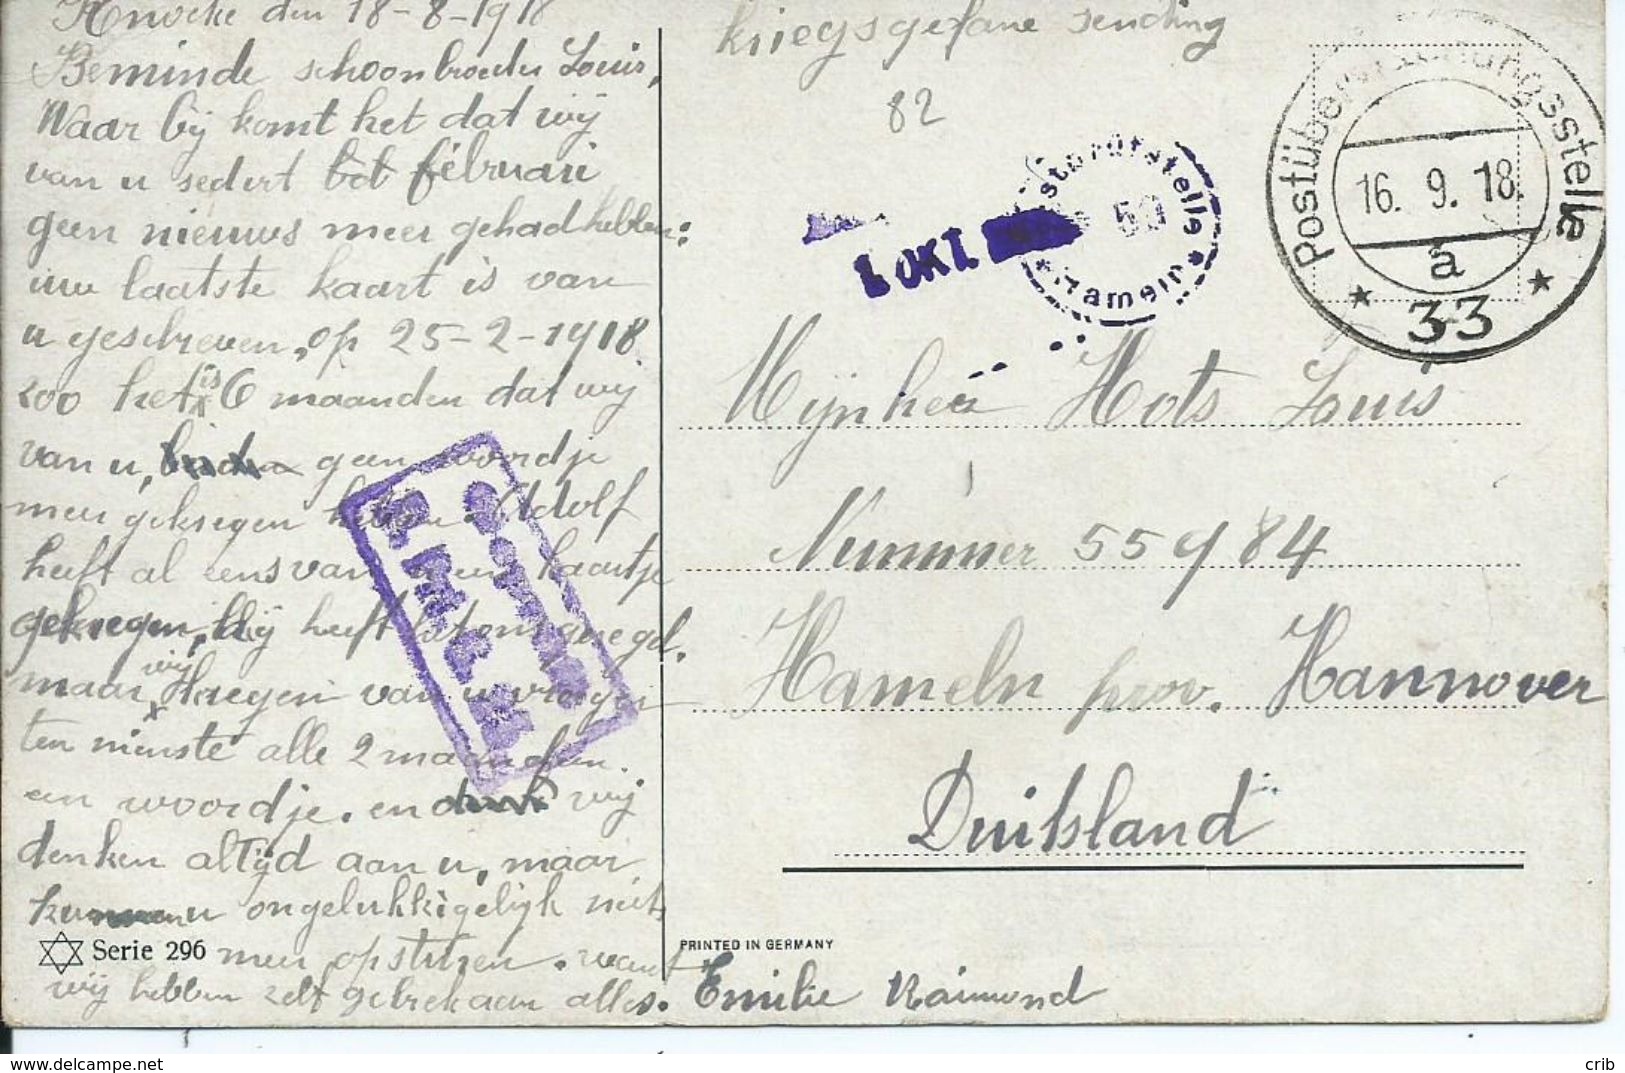 Knocke den 18-8-1918
Beminde schoonbroeder Louis,
Waar bij komt het dat wij
van u sedert februari
geen nieuws meer gehad hebben:
uw laatste kaart is van
u geschreven, op 25-2-1918
zoo het is 6 maanden dat wij
van u, geen woordje
meer gekregen hebben. Adolf
heeft al eens van een kaartje
gekregen, hij heeft het
maar wij kregen van u
ten minste alle 2 maanden
een woordje. en wij
denken altijd aan u, maar
kunnen u ongelukkigelijk niets
meer opsturen. want
wij hebben zelf gebrek aan alles.
Emilie Raimond
Serie 296
PRINTED IN GERMANY
kriegsgefane sending
82
Postprüfstelle
50
* Hameln *
Postüberwachungsstelle
16. 9. 18.
a
* 33 *
Mijnheer Hots Louis
Nummer 55984
Hameln prov. Hannover
Duitsland
crib